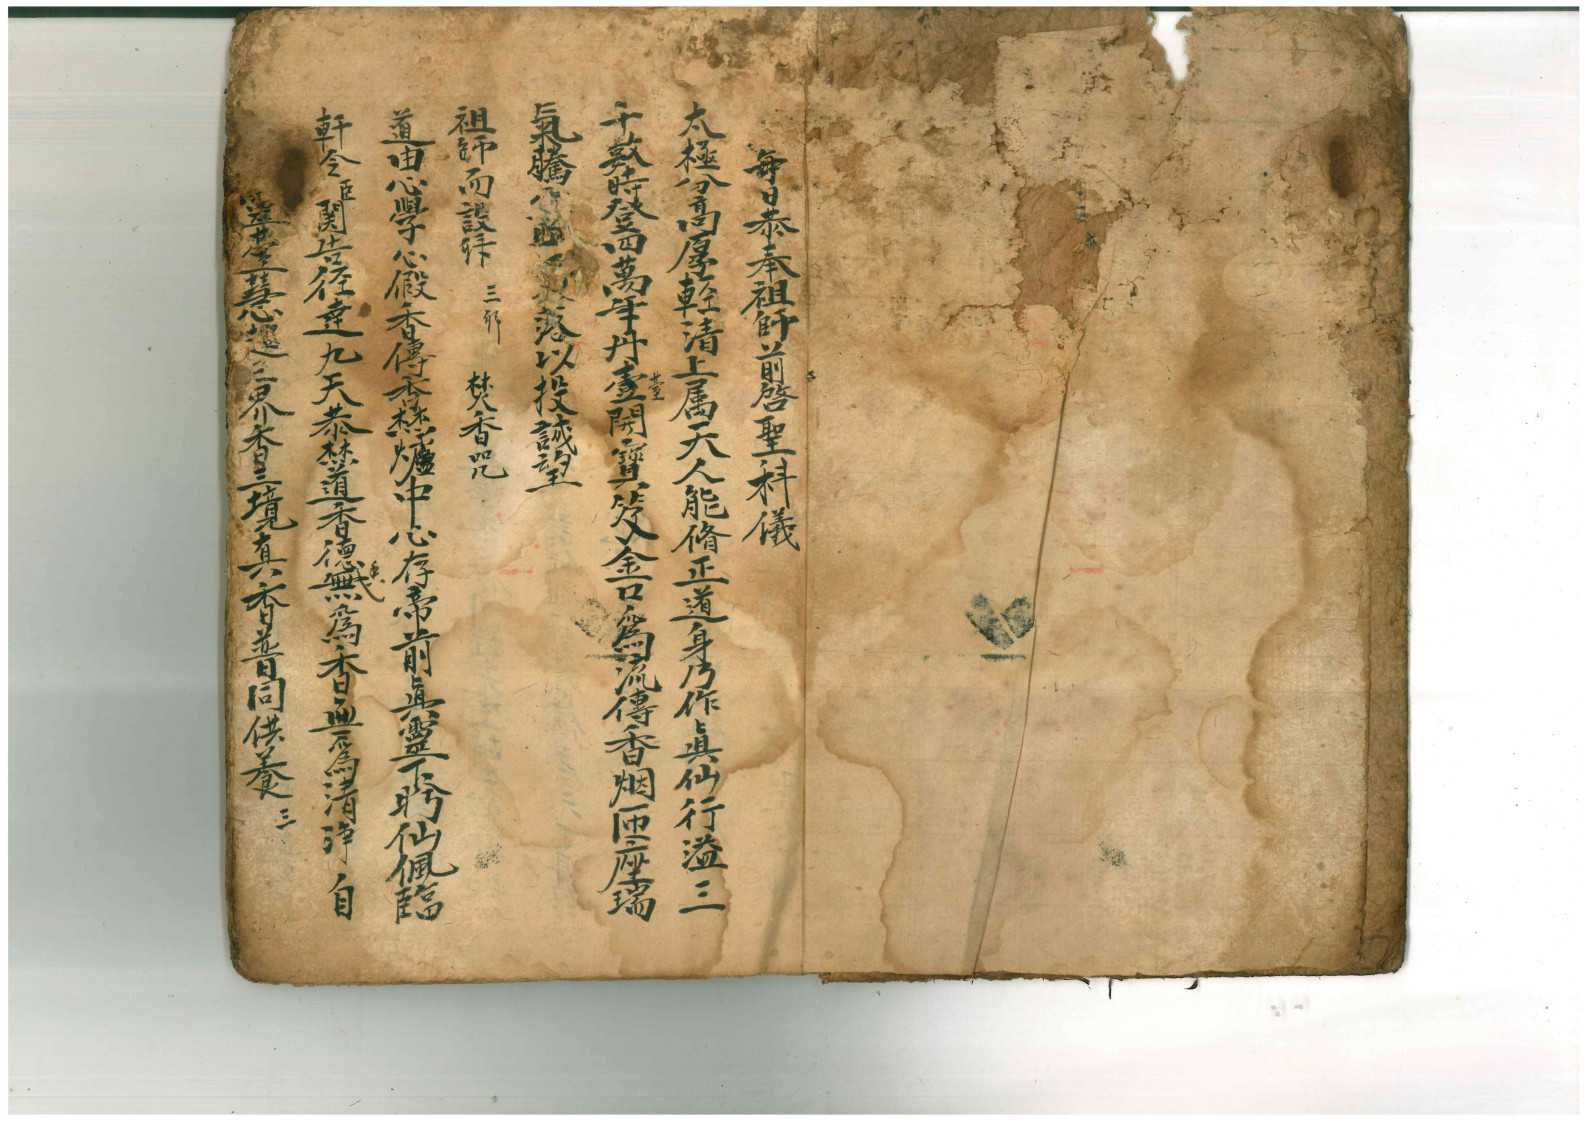 每日恭奉祖師前啓聖科儀
太極分高厚輕清上属天人能脩正道身乃作眞仙行溢三
千數時登四萬年丹臺開寶笈金口爲流傳香烟匝座瑞
氣騰落以投誠望
祖師而設拜 三 焚香咒
道由心學心假香傳香焚爐中心存帝前眞靈下盻仙佩臨
軒令臣関告徑達九天恭焚道香德香無爲香無爲清淨自
然香靈寶慧香超三界香三境真香普同供養 三